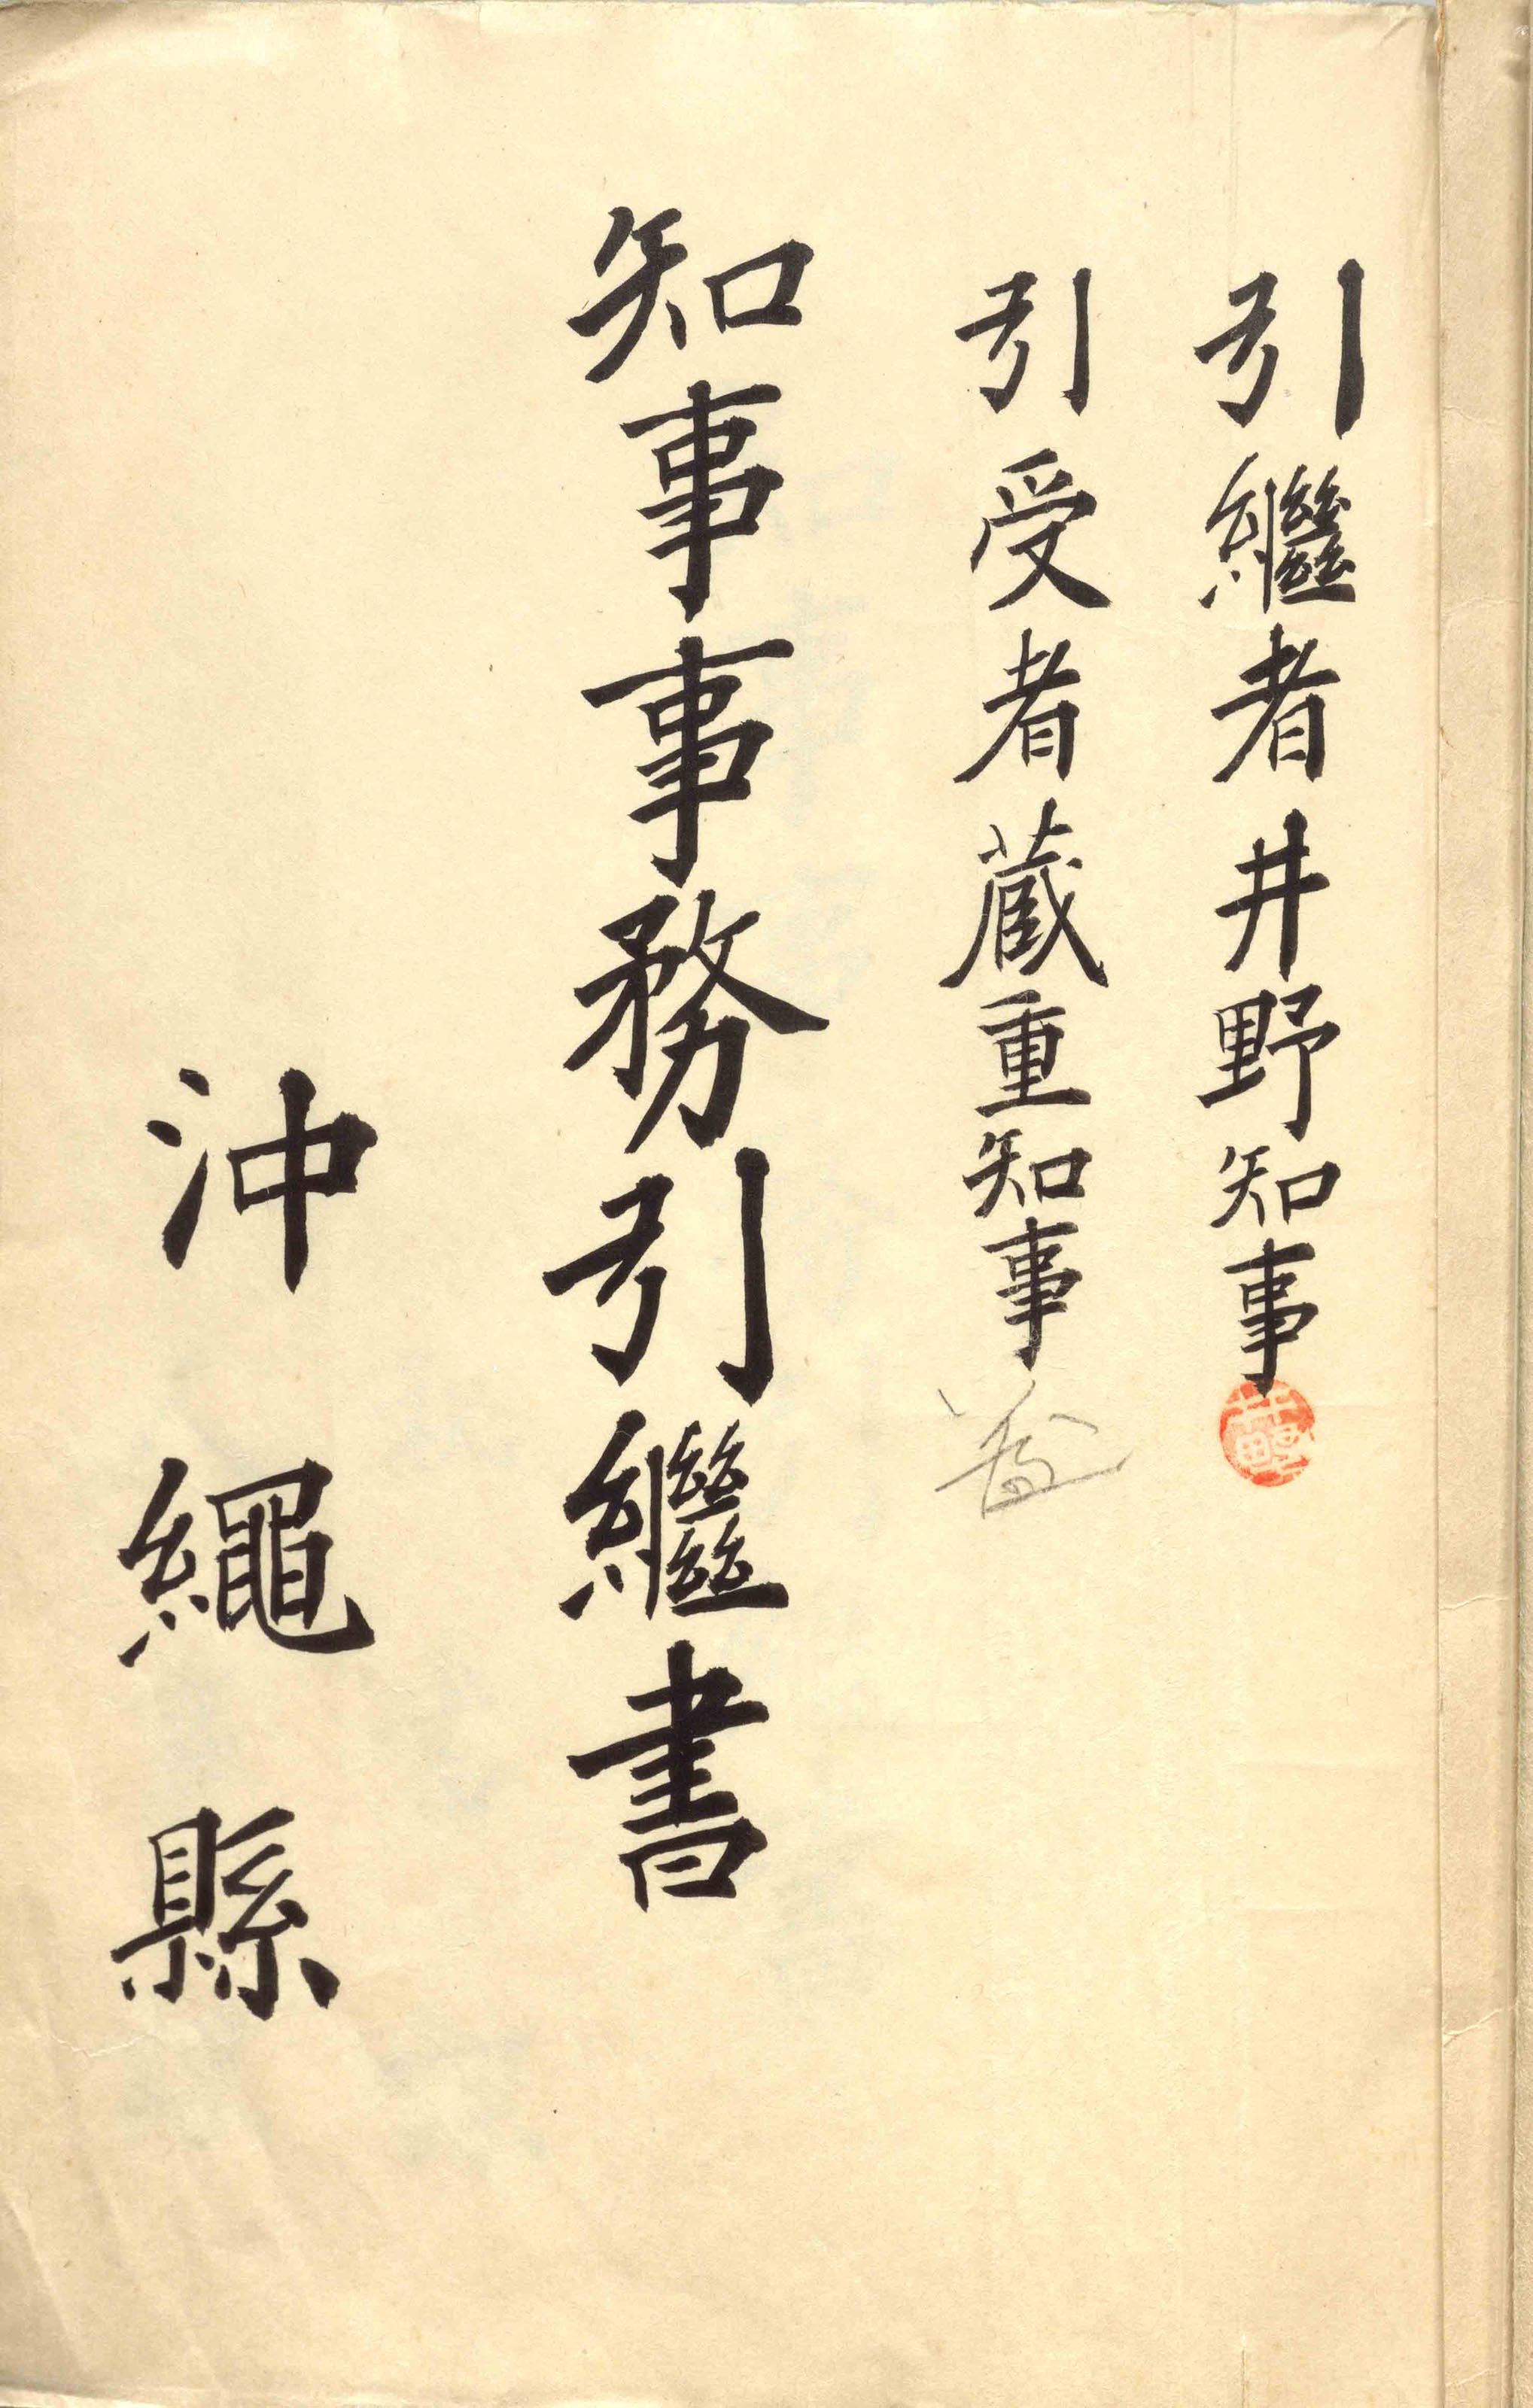 引繼者井野知事
引受者蔵重知事
知事事務引繼書
沖繩縣